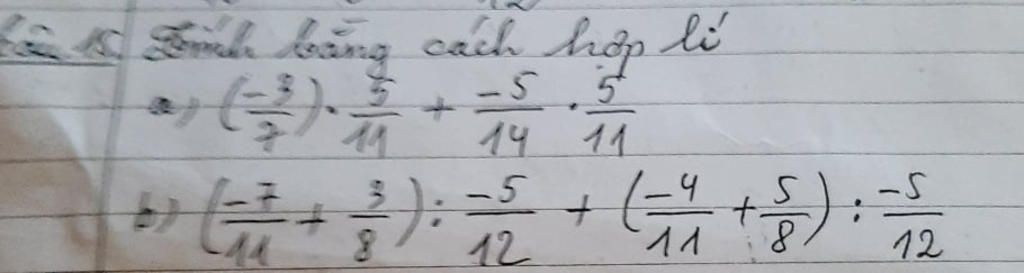 Bài 15. Tính bằng cách hợp lí
a) (-3/7) . 5/11 + -5/14 . 5/11
b) (-7/11 + 3/8) : -5/12 + (-4/11 + 5/8) : -5/12